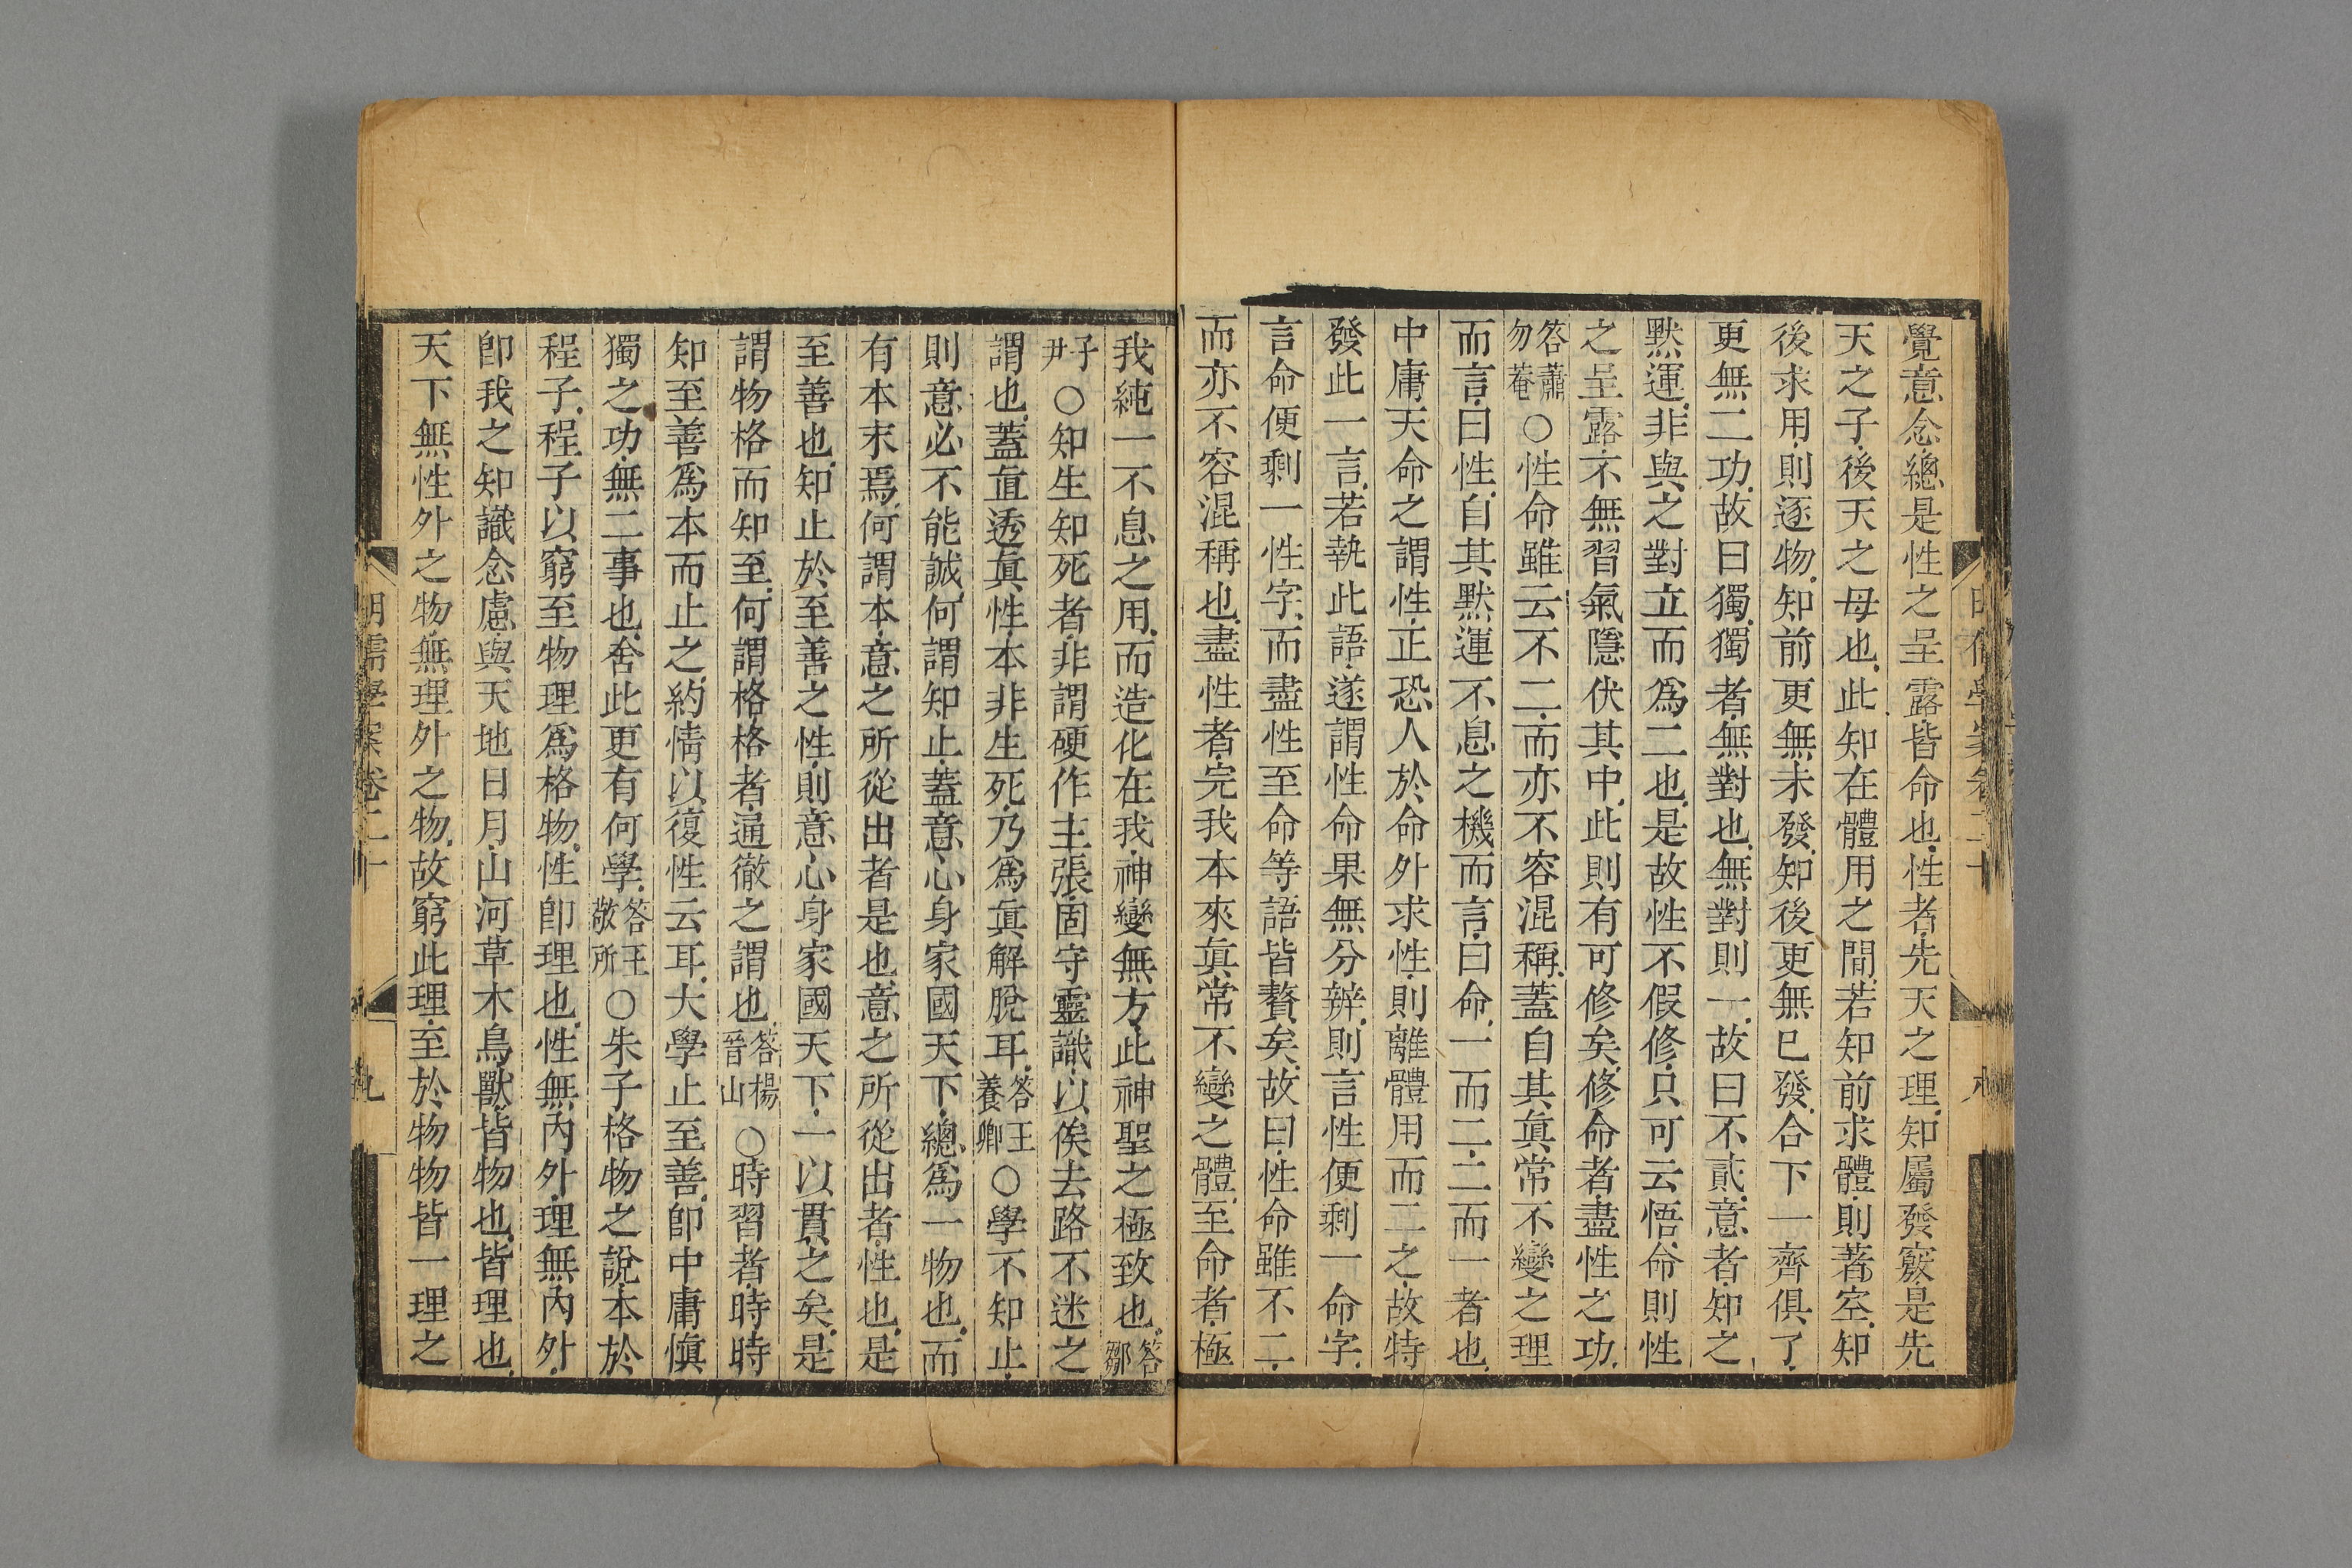 覺意念總是性之呈露皆命也性者先天之理知屬發竅是先
天之子後天之母也此知在體用之間若知前求體則著空知
後求用則逐物知前更無未發知後更無已發合下一齊俱了
更無二功故曰獨獨者無對也無對則一故曰不貳意者知之
默運非與之對立而爲二也是故性不假修只可云悟命則性
之呈露不無習氣隱伏其中此則有可修矣修命者盡性之功
答蕭勿菴○性命雖云不二而亦不容混稱蓋自其眞常不變之理
而言曰性自其默運不息之機而言曰命一而二二而一者也
中庸天命之謂性正恐人於命外求性則離體用而二之故特
發此一言若執此語遂謂性命果無分辨則言性便剩一命字
言命便剩一性字而盡性至命等語皆贅矣故曰性命雖不二
而亦不容混稱也盡性者完我本來眞常不變之體至命者極
我純一不息之用而造化在我神變無方此神聖之極致也答鄒
子尹○知生知死者非謂硬作主張固守靈識以俟去路不迷之
謂也蓋直透眞性本非生死乃爲眞解脫耳答王養卿○學不知止
則意必不能誠何謂知止蓋意心身家國天下總爲一物也而
有本末焉何謂本意之所從出者是也意之所從出者性也是
至善也知止於至善之性則意心身家國天下一以貫之矣是
謂物格而知至何謂格格者通徹之謂也答楊晉山○時習者時時
知至善爲本而止之約情以復性云耳大學止至善卽中庸愼
獨之功無二事也舍此更有何學答王敬所○朱子格物之說本於
程子程子以窮至物理爲格物性卽理也性無內外理無內外
卽我之知識念慮與天地日月山河草木鳥獸皆物也皆理也
天下無性外之物無理外之物故窮此理至於物物皆一理之
明儒學案卷二十
九